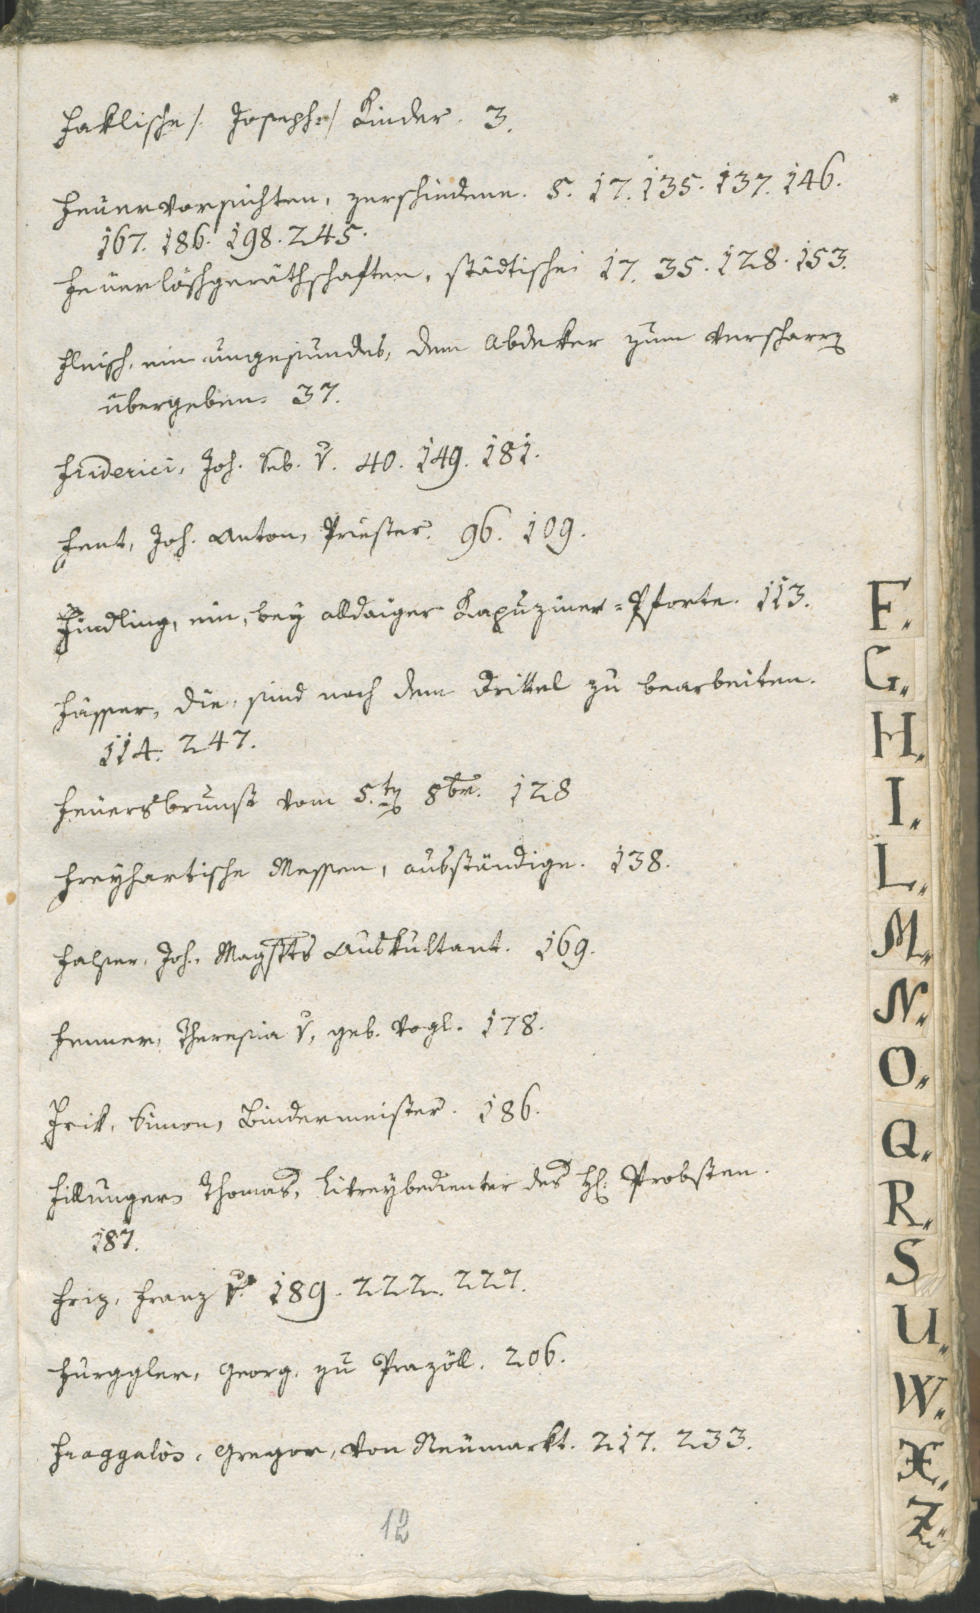 Faklische /: Joseph :/ Kinder. 3.
Feuervorsichten, zerschiedene. 5. 17. 135. 137. 146.
167. 186. 198. 245.
Feuerlöschgeräthschaften, städtische 17. 35. 128. 153.
Fleisch, ein ungesundes, dem Abdeker zum verscharren
übergeben. 37.
Friderici, Joh. Seb. 40. 149. 181.
Fent, Joh. Anton, Priester. 96. 109.
Findling, ein, bey alldaiger Kapuziner-Pforte. 113.
Fässer, die, sind nach dem Drittel zu bearbeiten.
114. 247.
Feuersbrunst vom 5.ten 8br. 128
Freyhartische Messen, ausständige. 138.
Falser, Joh. Magstts Auskultant. 169.
Fenner, Theresia, geb. Vogl. 178.
Frik, Simon, Bindermeister. 186.
Fillunger Thomas, Livreybedienter des H: Probsten.
187.
Friz, Franz 189. 222. 227.
Furggler, Georg, zu Prazöll. 206.
Fraggalòs, Gregor, von Neumarkt. 217. 233.
12
F.
G.
H.
I.
L.
M.
N.
O.
Q.
R.
S
U.
W.
X.
Z.